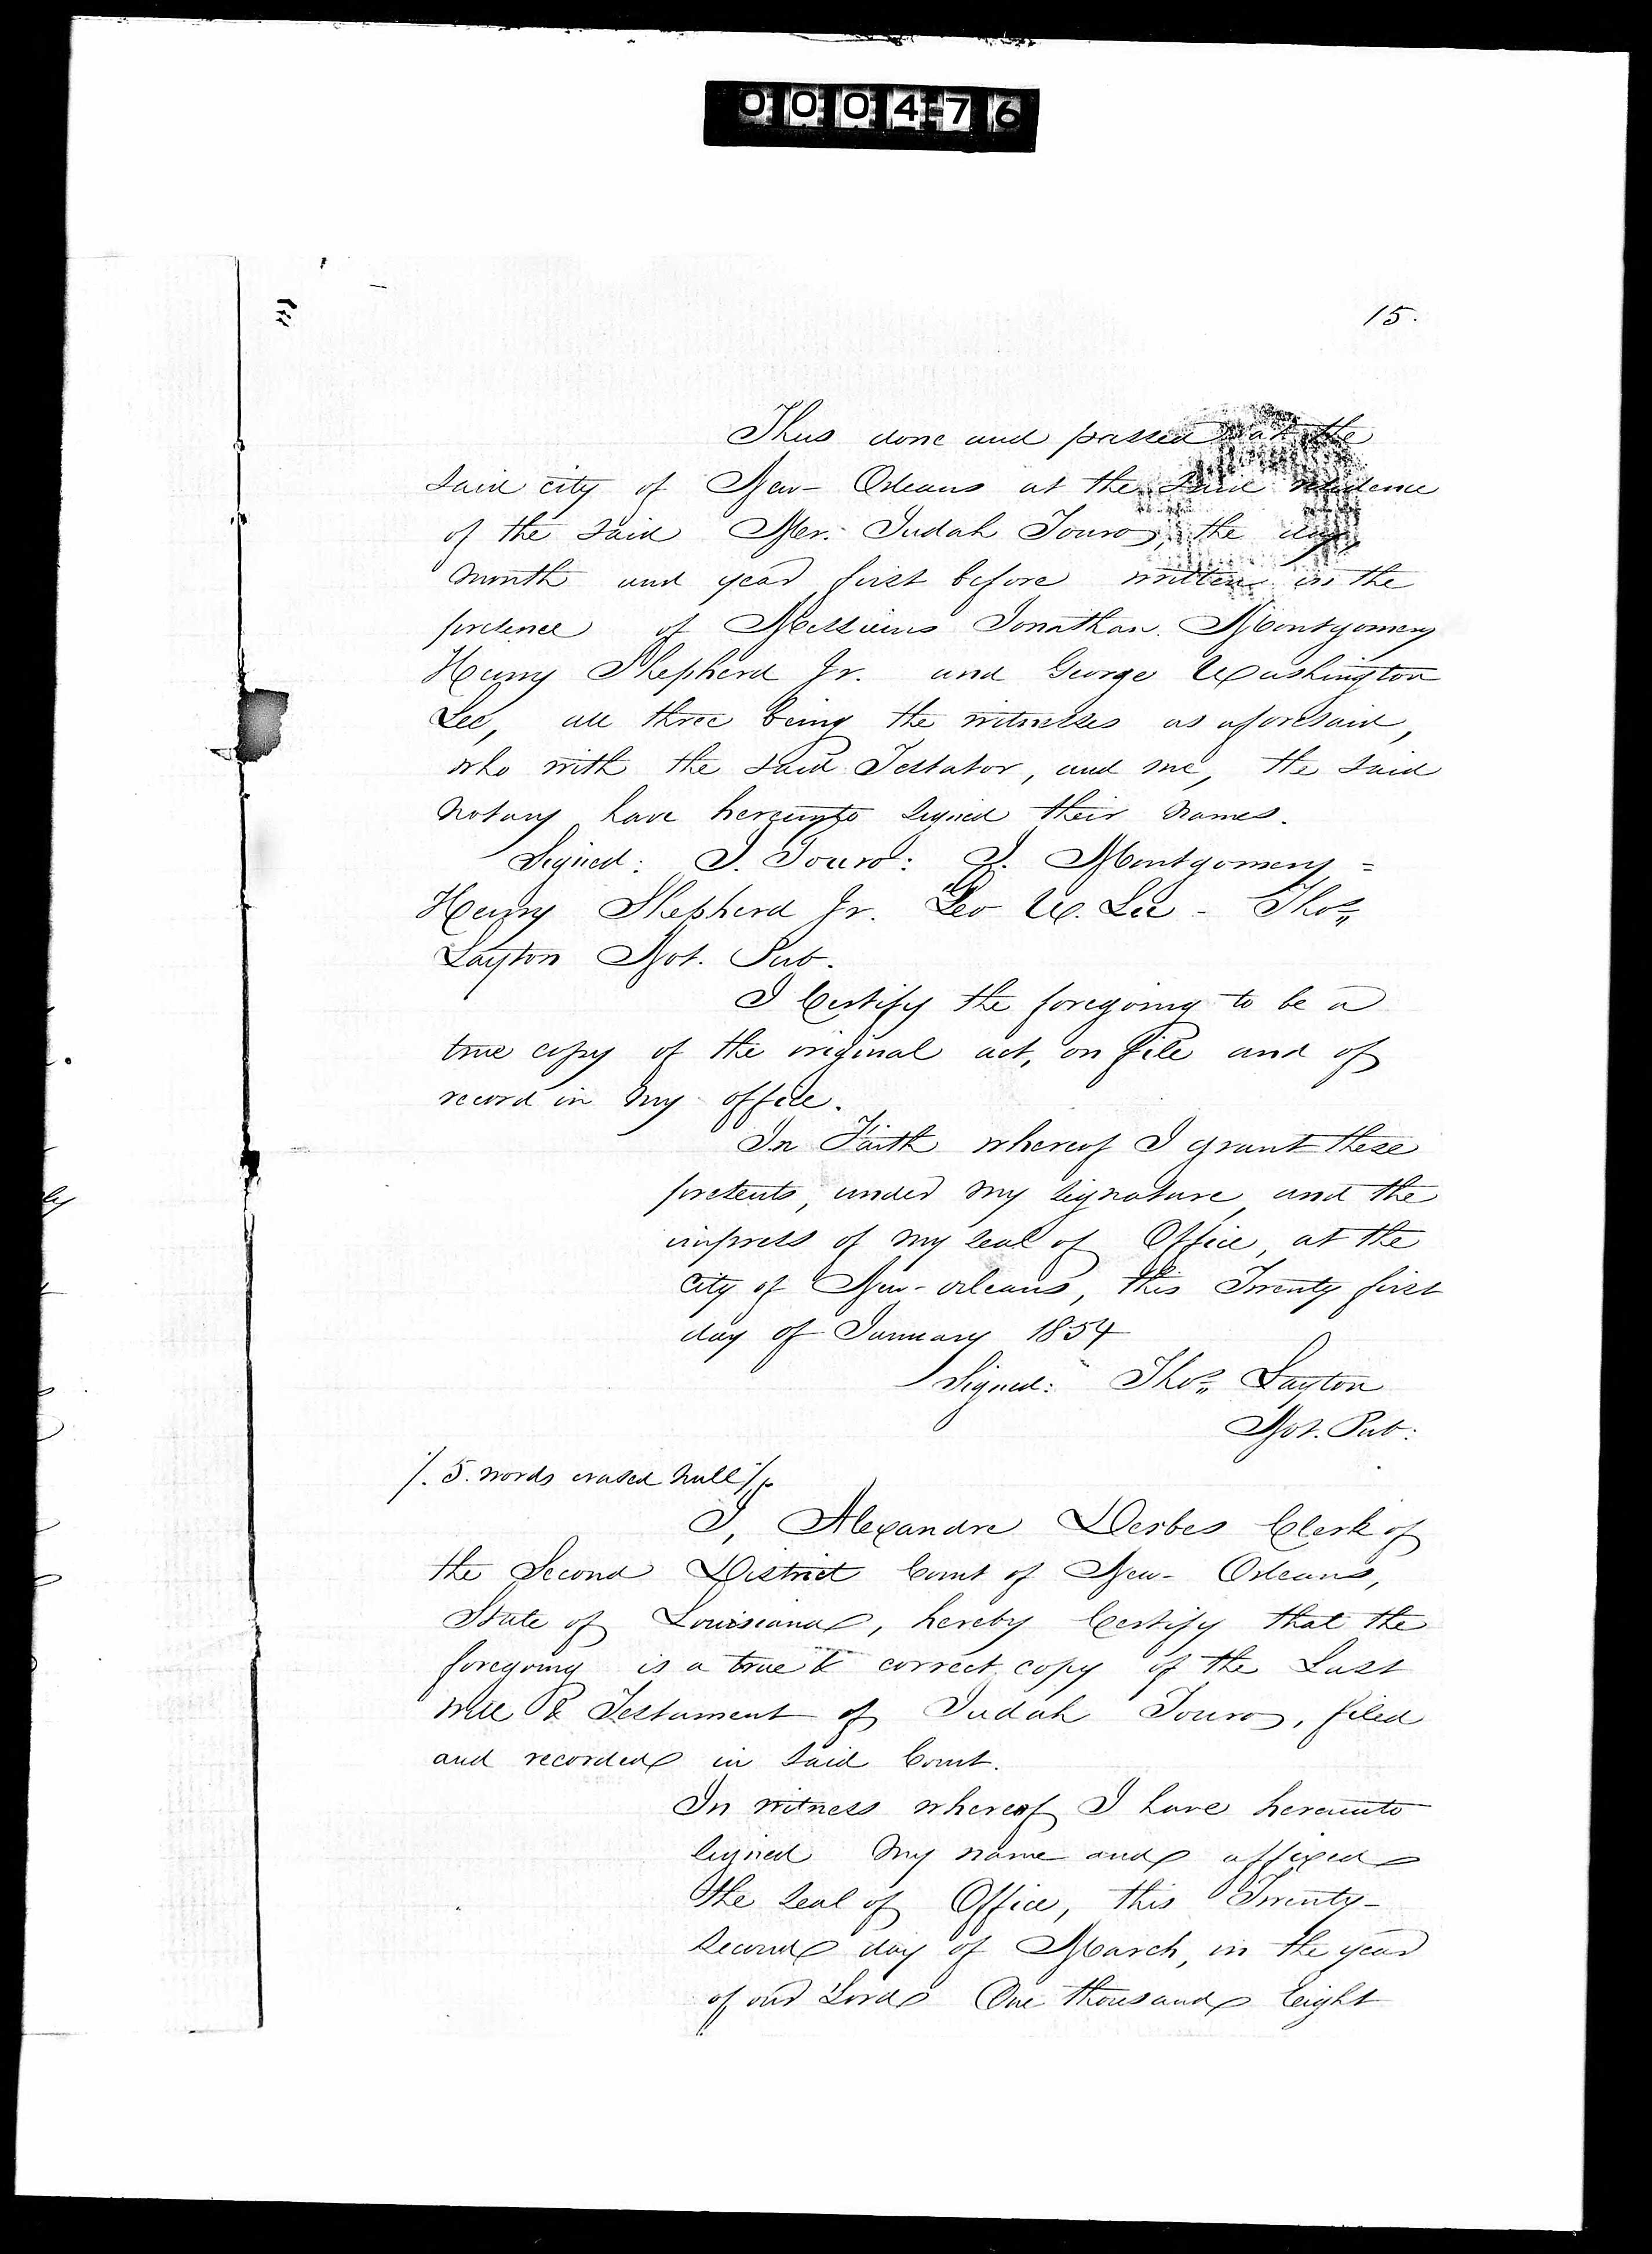 000476
15.
Thus done and passed at the
said city of New-Orleans at the said residence
of the said Mr. Judah Touro, the day,
month and year first before written in the
presence of Messieurs Jonathan Montgomery
Henry Shepherd Jr. and George Washington
Lee, all three being the witnesses as aforesaid,
who with the said Testator, and me, the said
notary have hereunto signed their names.
Signed: J. Touro: J. Montgomery =
Henry Shepherd Jr. Geo W. Lee - Thos
Layton Not. Pub.
I Certify the foregoing to be a
true copy of the original act, on file and of
record in my office.
In Faith whereof I grant these
presents, under my signature, and the
impress of my seal of Office, at the
city of New-orleans, this Twenty first
day of January 1854
Signed: Thos Layton
Not. Pub:
/. 5. words erased null /.
I, Alexandre Derbes Clerk of
the Second District Court of New-Orleans,
State of Louisiana, hereby Certify that the
foregoing is a true & correct copy of the Last
will & Testament of Judah Touro, filed
and recorded in said Court.
In witness whereof I have hereunto
signed my name and affixed
the seal of Office, this Twenty-
second day of March, in the year
of our Lord One thousand Eight